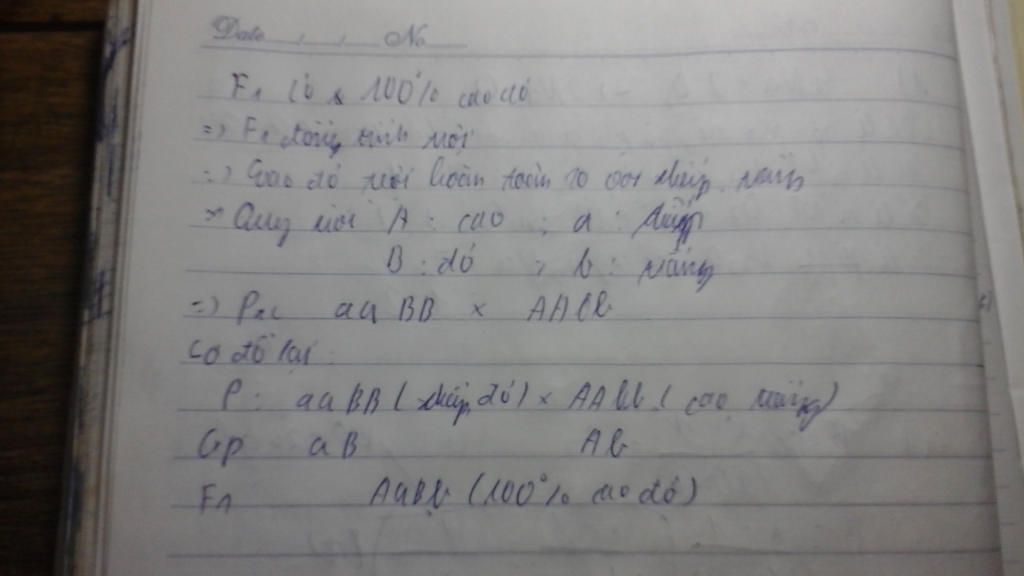 Date , , No
F1 có 100% cao đỏ
=> F1 đồng tính trội
=> Cao đỏ trội hoàn toàn so với thấp, vàng
=> Quy ước A : cao ; a : thấp
B : đỏ ; b : vàng
=> Ptc aaBB x AAbb
Sơ đồ lai :
P : aaBB ( thấp, đỏ ) x AAbb ( cao, vàng )
Gp aB Ab
F1 AaBb (100% cao đỏ)